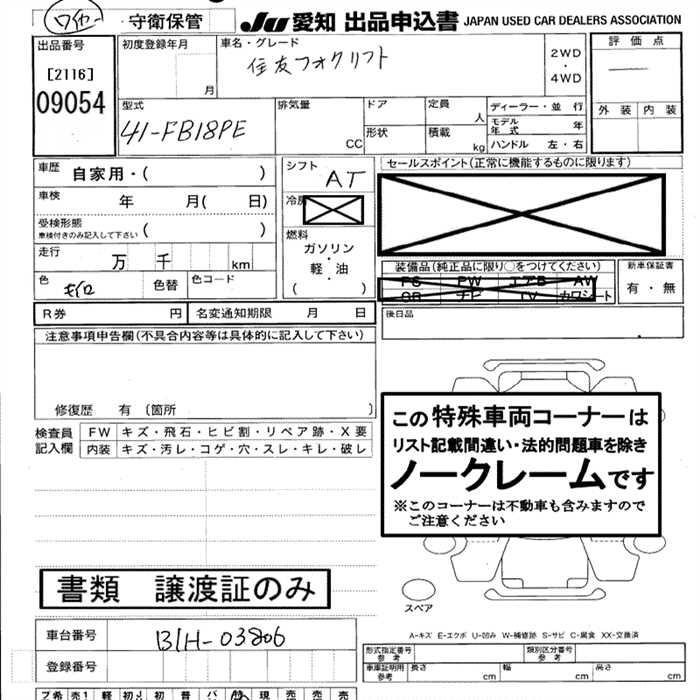 ワイヤー 守衛保管 JU 愛知 出品申込書 JAPAN USED CAR DEALERS ASSOCIATION
出品番号 初度登録年月 車名・グレード 評価点
[2116] 月 住友フォークリフト 2WD・4WD
09054
型式 排気量 ドア 定員 ディーラー・並行 外装 内装
41-FB18PE CC 形状 人 積載 kg モデル年式 年
ハンドル 左・右
車歴 自家用・( ) シフト AT セールスポイント(正常に機能するものに限ります)
車検 年 月( 日) 冷房
受検形態 ( )
車検付きのみ記入して下さい
燃料
走行 万 千 km ガソリン・軽・油 ( )
装備品(純正品に限り○をつけてください) 新車保証書
PS PW エアB AW
SR ナビ TV カワシート 有・無
色 キイロ 色替 色コード
R券 円 名変通知期限 月 日 後日品
注意事項申告欄(不具合内容等は具体的に記入して下さい)
修復歴 有 〔箇所 〕
検査員記入欄 FW キズ・飛石・ヒビ割・リペア跡・X要
内装 キズ・汚レ・コゲ・穴・スレ・キレ・破レ
この特殊車両コーナーは
リスト記載間違い・法的問題車を除き
ノークレームです
※このコーナーは不動車も含みますので
ご注意ください
書類 譲渡証のみ
スペア
A-キズ E-エクボ U-凹み W-補修跡 S-サビ C-腐食 XX-交換済
車台番号 B1H-03806
登録番号
形式指定番号 参考 類別区分番号 参考
車庫証明用 参考 長さ cm 幅 cm 高さ cm